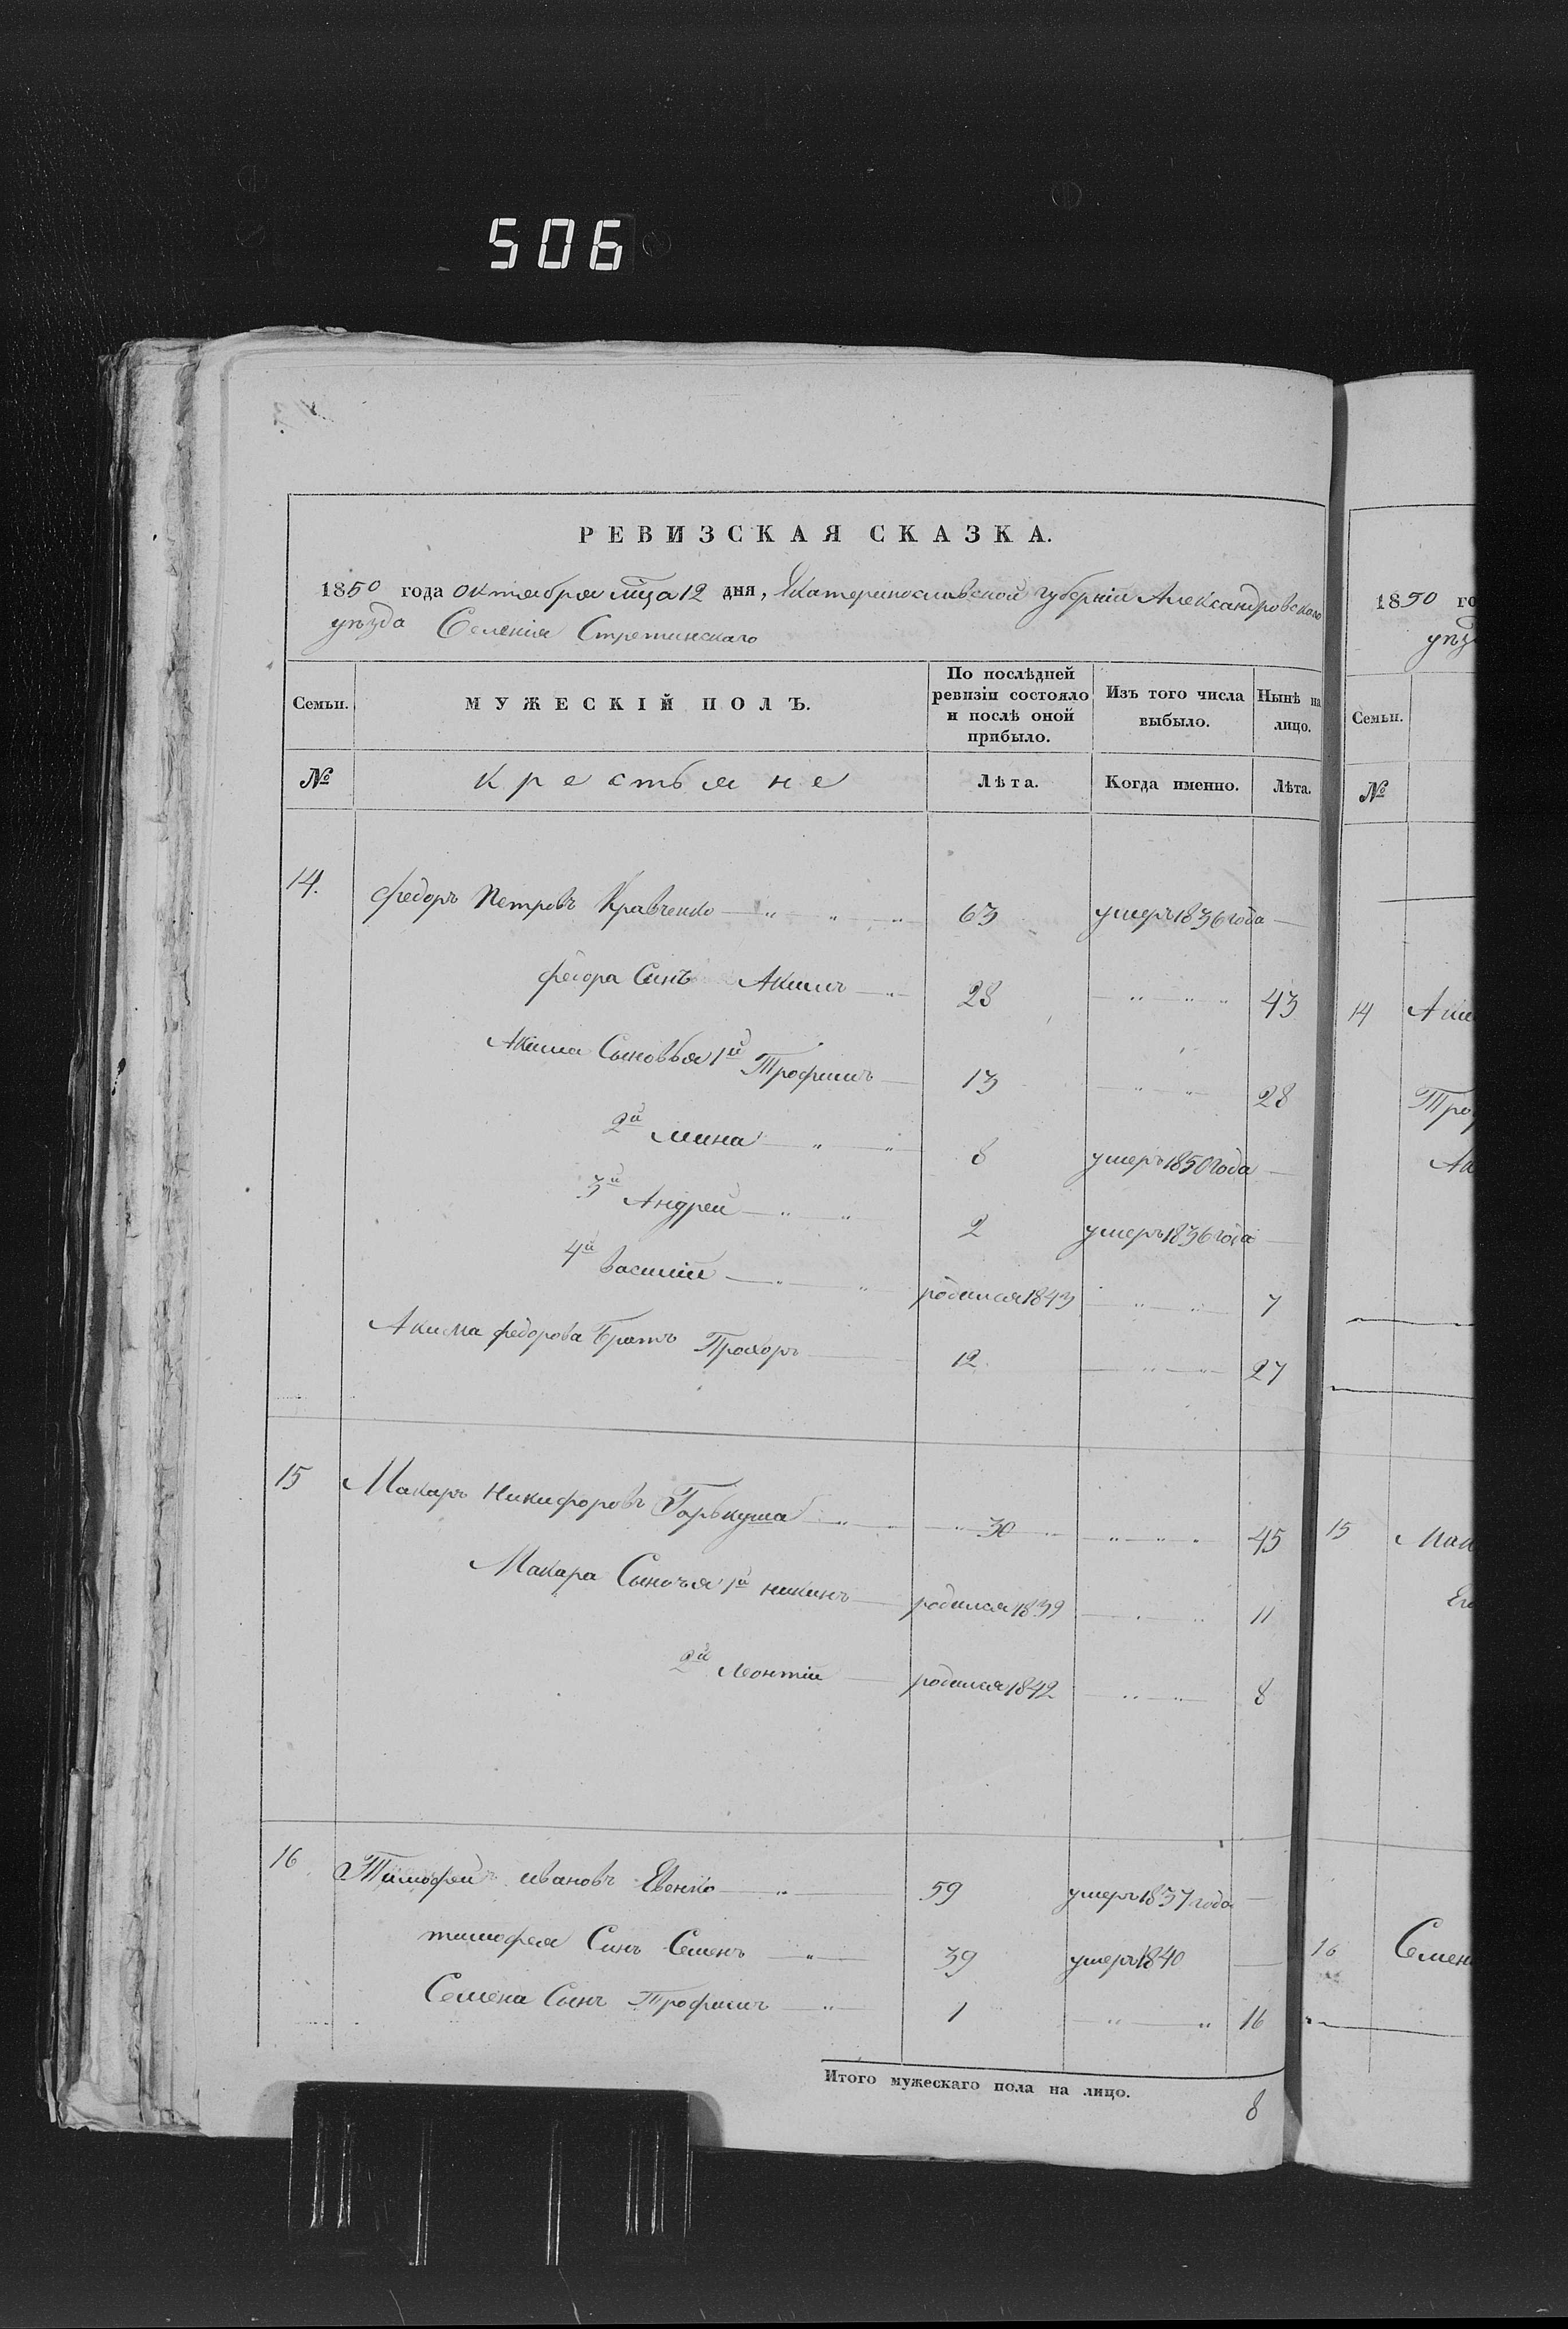 506
РЕВИЗСКАЯ СКАЗКА.
1850 года октября мца 12 дня, Екатеринославской губерніи Александровского
уѣзда Селенія Стретинскаго
Семьи. МУЖЕСКІЙ ПОЛЪ. По послѣдней ревизіи состояло и послѣ оной прибыло. Изъ того числа выбыло. Нынѣ на лицо.
№ Крестьяне Лѣта. Когда именно. Лѣта.
14. Федоръ Петровъ Кравченко 63 умеръ 1836 года
федора Синъ Акимъ 28 43
Акима Сыновья 1й Трофимъ 13 28
2й Мина 8 умеръ 1850 года
3й Андрей 2 умеръ 1836 года
4й Василій родился 1843 7
Акима федорова Братъ Прохоръ 12 27
15 Макаръ Никифоровъ Гарькуша 30 45
Макара Сыновья 1й родился 1839 11
2й Леонтій родился 1842 8
16 Тимофей Ивановъ Евенко 59 умеръ 1837 года
тимофея Синъ Семенъ 39 умеръ 1840
Семена Сынъ Трофимъ 1 16
Итого мужескаго пола на лицо. 8
1850 го
уѣз
Семьи.
№
14 Аки
Тро
15 Мак
16 Семен